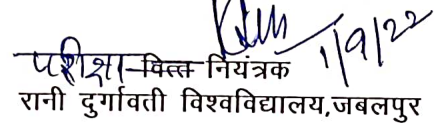 1/9/22
परीक्षा वित्त नियंत्रक
रानी दुर्गावती विश्वविद्यालय,जबलपुर